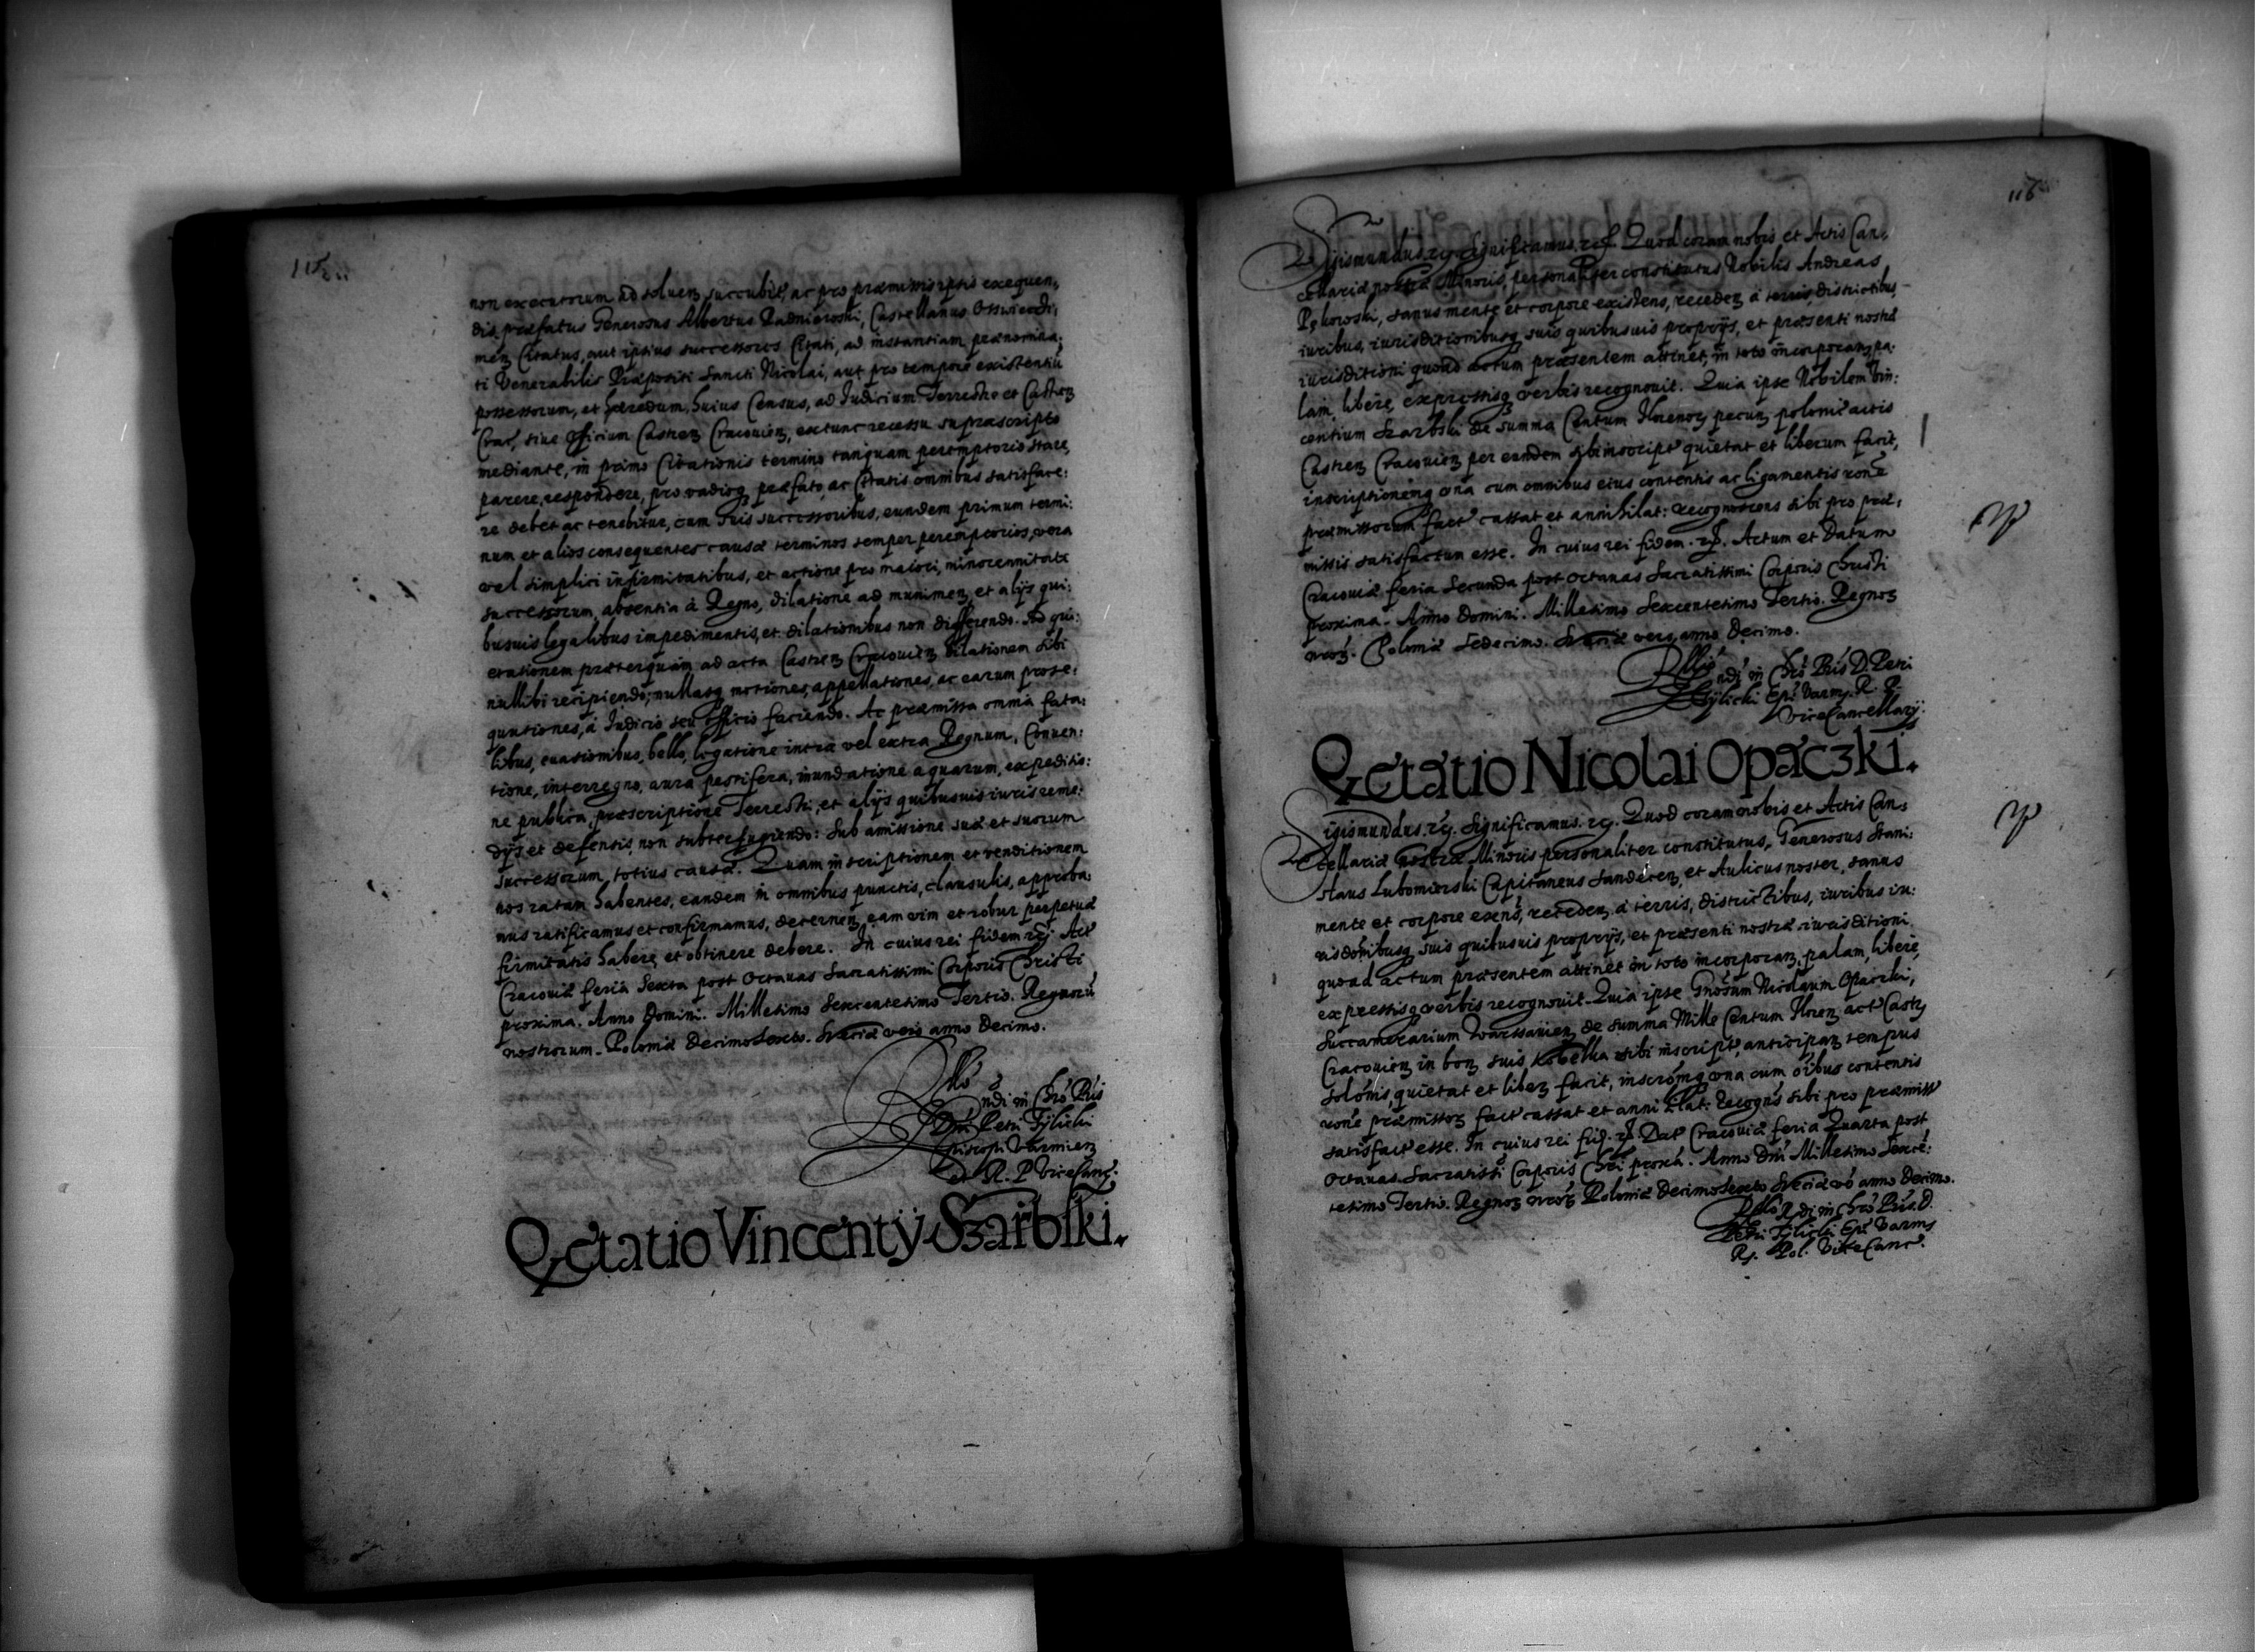 115
non executorum ad soluen succubit, ac pro præmissis ipsis exequen,
dis, præfatus Generosus Albertus Padnieroski, Castellanus Osswiencdi,
men Citatus, aut ipsius successores Citati, ad instantiam prænomina,
ti Venerabilis Præpositi Sancti Nicolai, aut pro tempore existentiũ
possessorum, et hæredum, huius Census, ad Iudicium Terrestre et Castren
Crac, siue Officium Castren Cracouien, extunc recessu suprascripto
mediante, in primo Citationis termino tanquam peremptorio stare,
parere, respondere, pro vadiisq præfatis, ac Citatis omnibus satisface:
re debet ac tenebitur, cum suis successoribus, eundem primum termi:
num et alios consequentes causæ terminos semper peremptorios, vera
vel simplici infirmitatibus, et actione pro maiori, minorennitate
successorum, absentia à Regno, dilatione ad munimen, et alijs qui:
busuis legalibus impedimentis, et dilationibus non differendo. Ad qui:
etationem præterquam ad acta Castren Cracouien dilationem sibi
nullibi recipiendo; nullasq motiones, appellationes, ac earum prose:
quutiones, à Iudicio seu officio faciendo. Ac præmissa omnia fata:
libus, euasionibus, bello, legatione intra vel extra Regnum, Conuen:
tione, interregno, aura pestifera, inundatione aquarum, expeditio:
ne publica, præscriptione Terrestri, et alijs quibusuis iuris reme:
dijs et defensis, non subterfugiendo: Sub amissione suæ et suorum
successorum, totius causæ. Quam inscriptionem et venditionem
nos ratam habentes, eandem in omnibus punctis, clausulis, approba:
mus ratificamus et confirmamus, decernen, eam vim et robur perpetuæ
firmitatis habere et obtinere debere. In cuius rei fidem rcj Act
Cracouiæ feria Sexta post Octauas Sacratissimi Corporis Christi
proxima. Anno Domini. Millesimo Sexcentesimo Tertio. Regnorũ
nostrorum. Poloniæ Decimosexto. Sueciæ vero anno Decimo.
Rllo
ndi in Chro Pris
Dni Petri Tylicki
Episcopi Varmien
et R. P. ViceCanc.
Qctatio Vincentÿ Szarbski.
116
Sigismundus. rcj. Significamus. rcj. Quod coram nobis et Actis Can,
cellariæ nostræ Minoris, personaliter constitutus Nobilis Andreas
Pękowski, sanus mente et corpore existens, receden à terris, districtibus,
iuribus, iurisditionibusq suis quibusuis proprijs, et præsenti nostræ
iurisditioni quoad actum præsentem attinet, in toto incorporan, pa:
lam, libere, expressisq verbis recognouit. Quia ipse Nobilem Vin:
centium Szarbski de summa Centum florenor pecun, polonic actis
Castren Cracouien per eundem sibi inscript quietat et liberum facit,
inscriptionemq una cum omnibus eius contentis ac ligamentis rone
præmissorum fact cassat et annihilat: recognoscens sibi pro præ:
missis satisfactum esse. In cuius rei fidem. rcj. Actum et Datum
Cracouiæ feria Secunda post octauas Sacratissimi Corporis Christi
proxima. Anno Domini. Millesimo Sexcentesimo Tertio. Regnor
nror. Poloniæ Sedecimo. Sueciæ vero, anno Decimo.
Rllo
ndi in Chro Pris D. Petri
Tylicki Epi Varm. R. P.
ViceCancellary.
Qctatio Nicolai Opaczki.
Sigismundus. rcj. Significamus. rcj. Quod coram nobis et Actis Can,
cellariæ nostræ Minoris personaliter constitutus, Generosus Stani:
slaus Lubomirski Capitaneus Sandecen, et Aulicus noster, sanus
mente et corpore exens, receden à terris, districtibus, iuribus iu:
risdonibusq suis quibusuis proprijs, et præsenti nostræ iurisditioni
quoad actum præsentem attinet in toto incorporan, palam, libere,
expressisq verbis recognouit. Quia ipse Gnosum Nicolaum Opaczki,
Succamerarium Warssauien de summa Mille Centum floren act Castr
Cracouien in bon suis Kobelka sibi inscript, anticipan tempus
solonis, quietat et liber facit, inscronemq una cum oibus contentis
rone præmissor fact cassat et annihilat. Recognos sibi pro præmiss
satisfact esse. In cuius rei fid. rcj. Dat Cracouiæ feria Quarta post
Octauas Sacratissi Corporis Chri proxa. Anno Dni Millesimo Sexcē:
tesimo Tertio. Regnor nror Poloniæ Decimosexto Sueciæ vo anno Decimo.
Rllo Rdi in Chro Pris. D.
Petri Tylicki Epi Varm
R. Pol. ViceCanc.